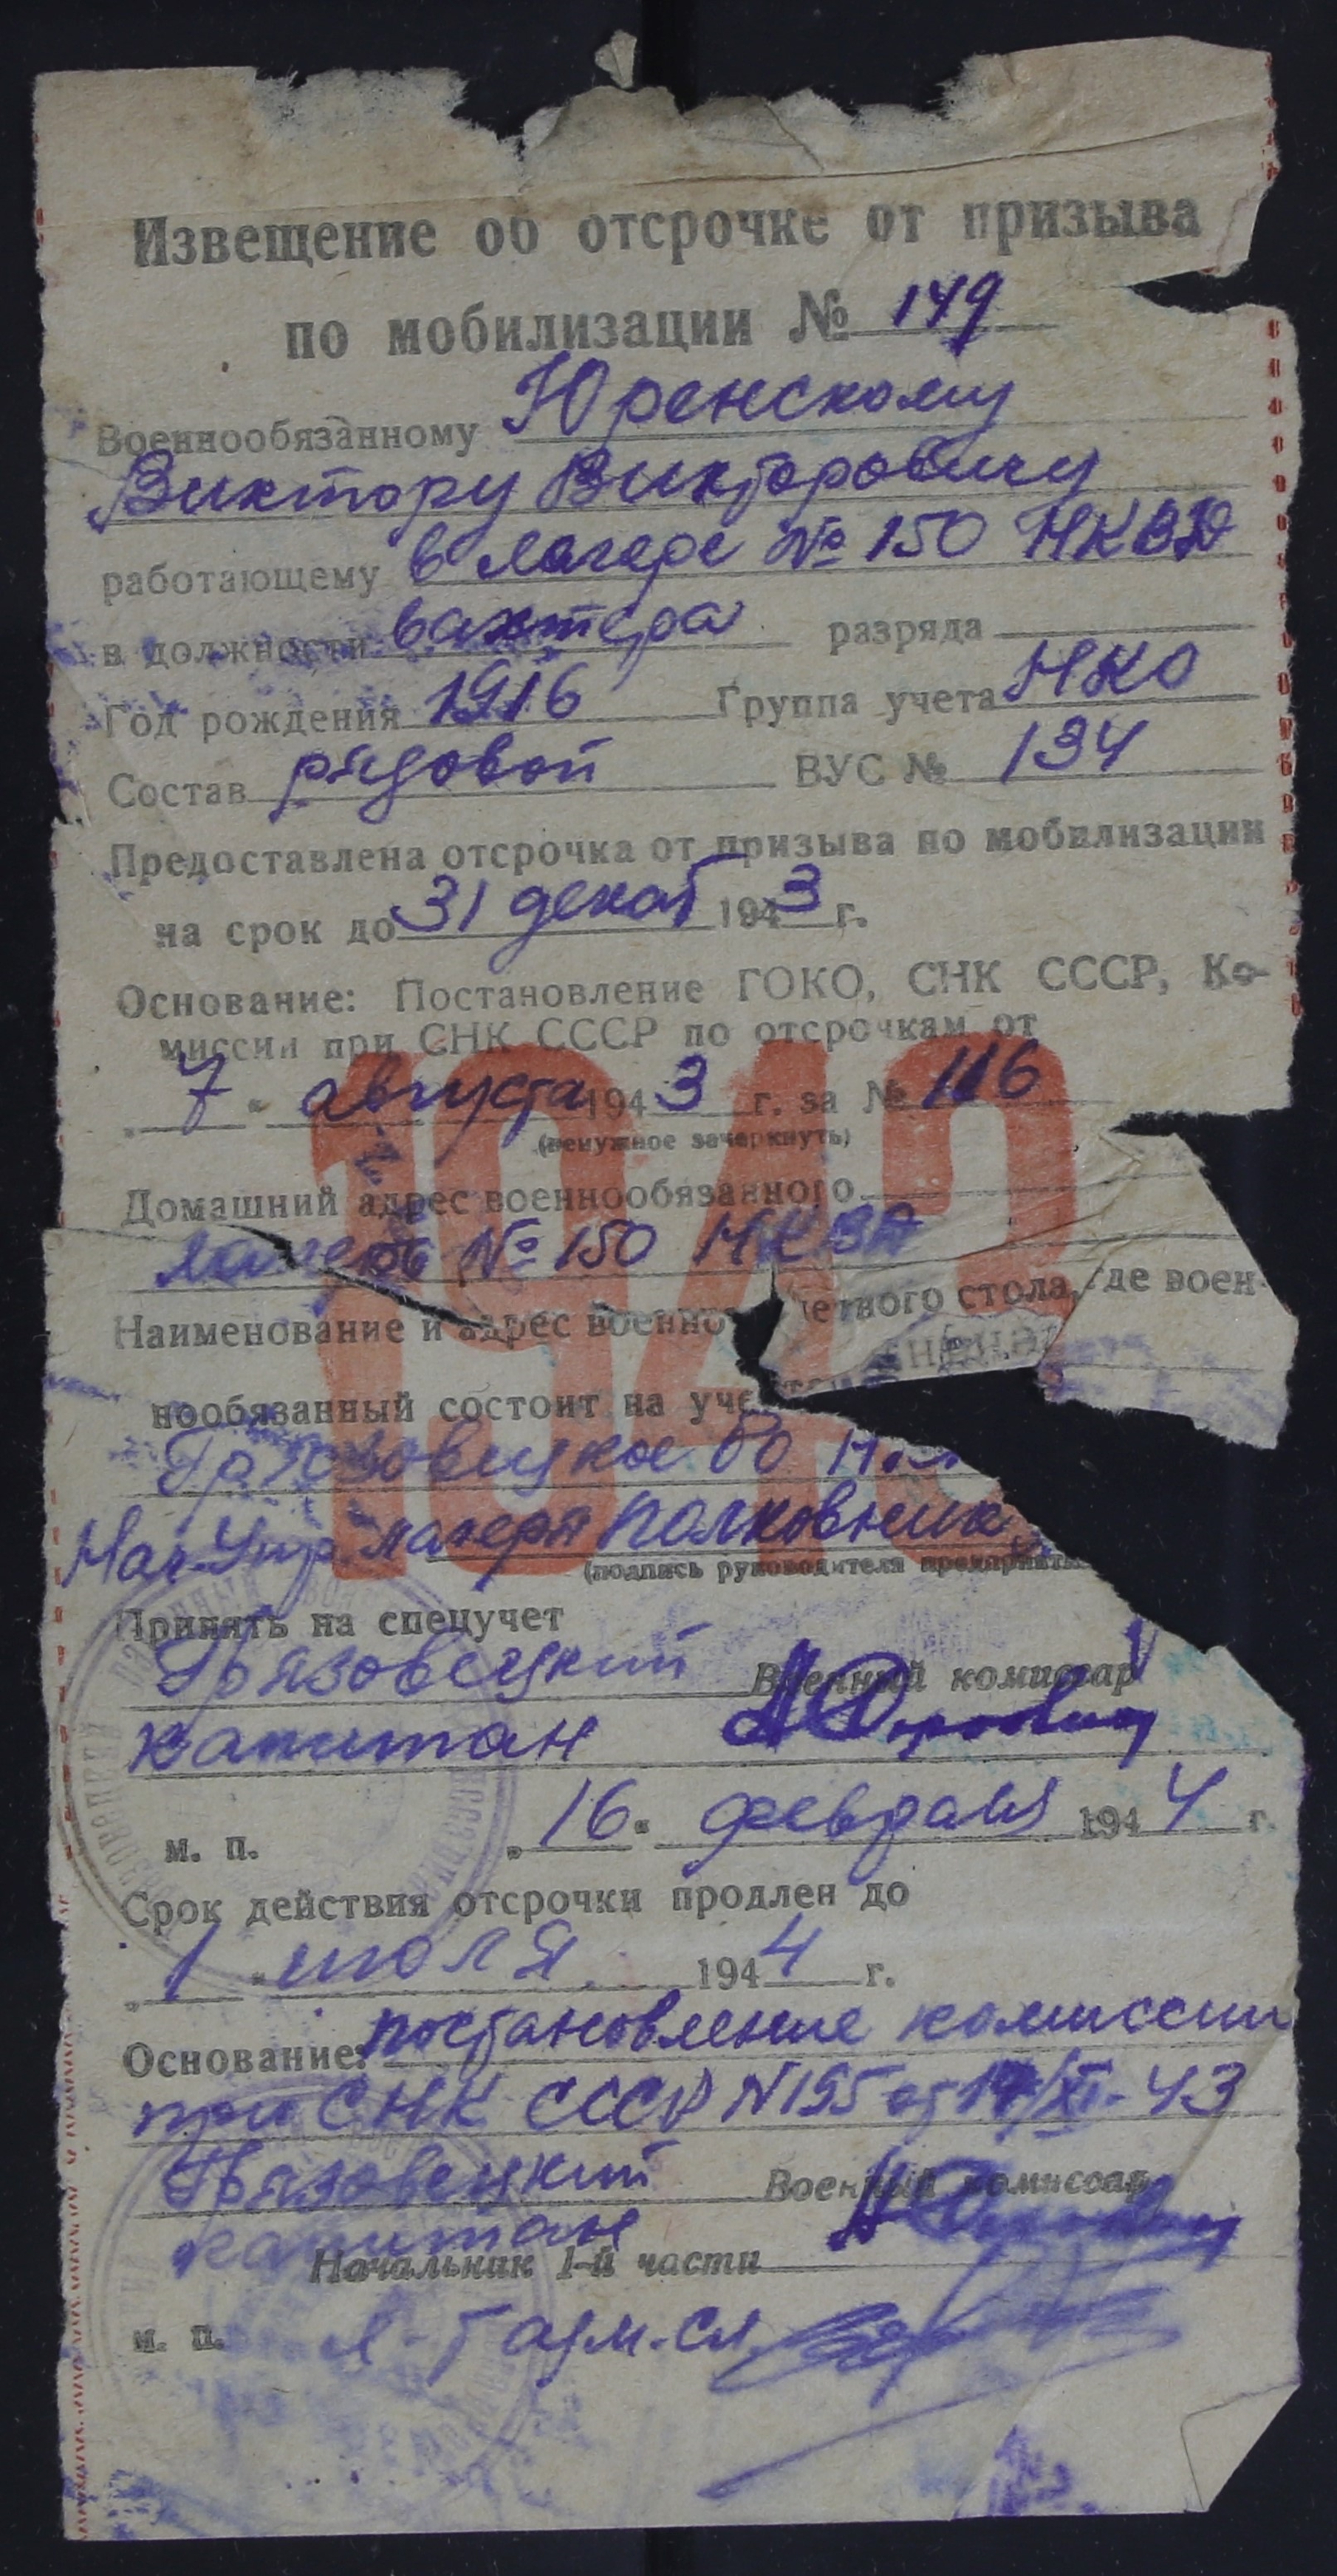 Извещение об отсрочке от призыва
по мобилизации № 149
Военнообязанному Юренскому
Виктору Викторовичу
работающему в лагере № 150 НКВД
в должности вахтера разряда
Год рождения 1916 Группа учета НКО
Состав рядовой ВУС № 134
Предоставлена отсрочка от призыва по мобилизации
на срок до 31 декаб 1943 г.
Основание: Постановление ГОКО, СНК СССР, Ко-
миссии при СНК СССР по отсрочкам от
„7" августа 1943 г. за № 116
(ненужное зачеркнуть)
1943
Домашний адрес военнообязанного
лагерь № 150 НКВД
Наименование и адрес военно етного стола, где воен-
нообязанный состоит на уче
Грязовецкое РО
Нач. Упр. лагеря полковник
(подпись руководителя предприяти
Принять на спецучет
Грязовецкий Военный комиссар
капитан
м. п. „16" февраля 1944 г.
Срок действия отсрочки продлен до
„1" июля 1944 г.
Основание: постановление комиссии
при СНК СССР N 195 от 17/XI-43
Грязовецкий Военный комиссар
капитан
Начальник 1-й части
м. п.